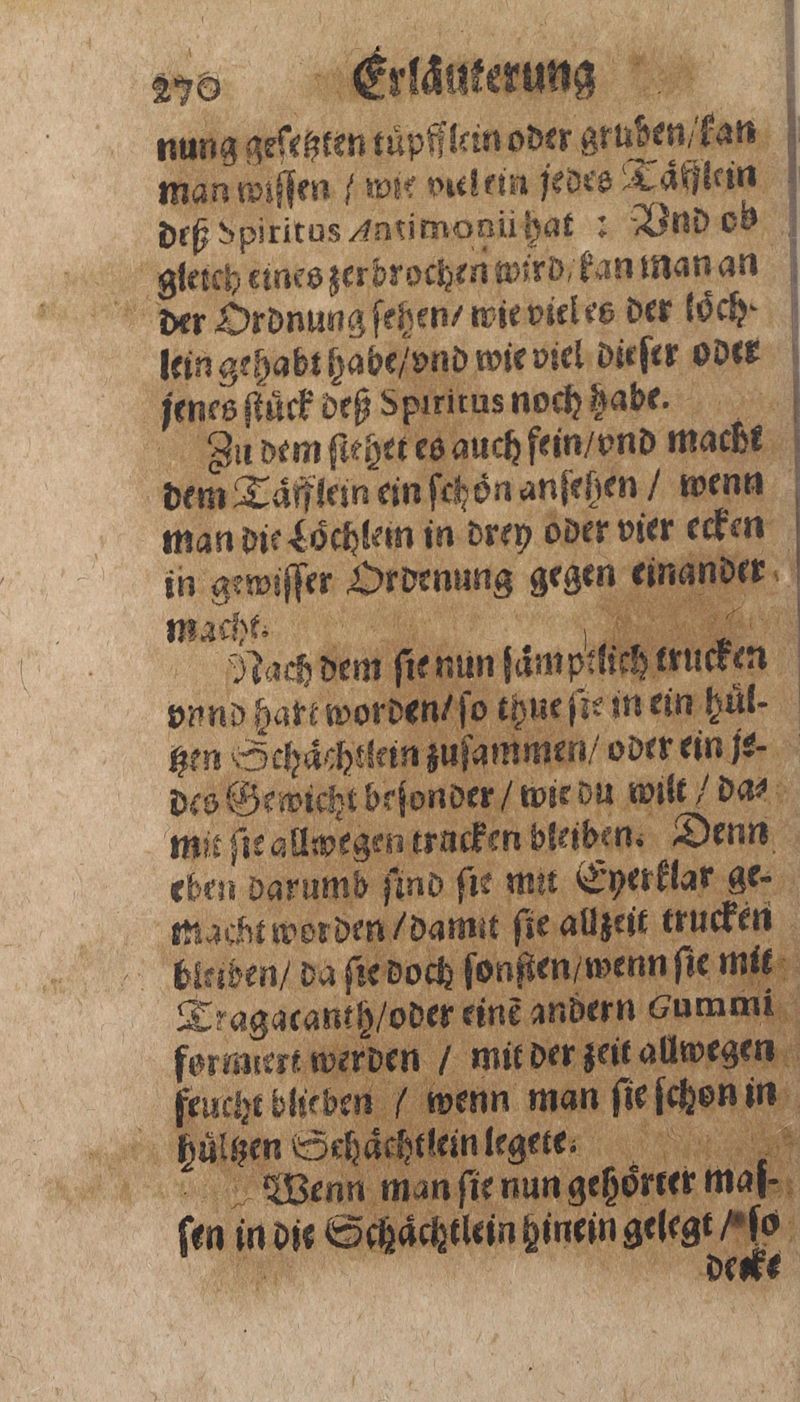 270 Erläuterung
nung geſetzten tüpfflein oder gruben/ kan
man wiſſen / wie viel ein jedes Täfflein
deß Spiritus Antimonii hat : Vnd ob
gleich eines zerbrochen wird/ kan man an
der Ordnung ſehen/ wie viel es der löch-
lein gehabt habe/ vnd wie viel dieſer oder
jenes ſtück deß Spiritus noch habe.
Zu dem ſtehet es auch fein/ vnd macht
dem Täfflein ein ſchön anſehen / wenn
man die Löchlein in drey oder vier ecken
in gewiſſer Ordenung gegen einander
macht.
Nach dem ſie nun ſämptlich trucken
vnnd hart worden/ ſo thue ſie in ein hül-
tzen Schächtlein zuſammen/ oder ein je-
des Gewicht beſonder / wie du wilt / da-
mit ſie allwegen trucken bleiben. Denn
eben darumb ſind ſie mit Eyerklar ge-
macht worden / damit ſie allzeit trucken
bleiben/ da ſie doch ſonſten/ wenn ſie mit
Tragacanth/ oder einē andern Gummi
formiert werden / mit der zeit allwegen
feucht blieben / wenn man ſie ſchon in
hültzen Schächtlein legete.
Wenn man ſie nun gehörter maſ-
ſen in die Schächtlein hinein gelegt / ſo
decke